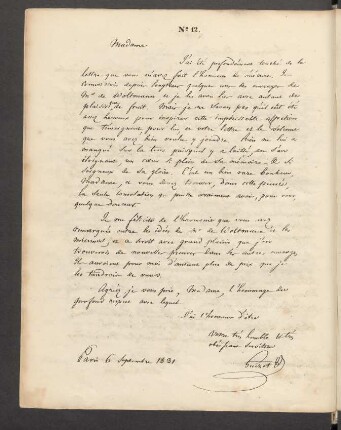 No 12.
Madame
J'ai été profondément touché de la
lettre que vous m'avez fait l'honneur de m'écrire. Je
connaissais depuis longtems quelques uns des ouvrages de
Mr de Woltmann et je les avais lus avec autant de
plaisir que de fruit. Mais je ne savais pas qu'il eut été
assez heureux pour inspirer cette impérissable affection
que témoignent pour lui et votre lettre et le volume
que vous avez bien voulu y joindre. Rien ne lui a
manqué sur la terre puisqu'il y a laissé, en s'en
éloignant, un cœur si plein de sa mémoire et si
soigneux de sa gloire. C'est un bien rare bonheur,
Madame, et vous devez trouver, dans cette pensée,
la seule consolation qui puisse conserver avoir, pour vous
quelque douceur.
Je me félicite de l'harmonie que vous avez
remarquée entre les idées de Mr de Woltmann et les
miennes; et ce serait avec grand plaisir que j'en
trouverais de nouvelles preuves dans les autres ouvrages.
Ils auraient pour moi d'autant plus de prix que je
les tiendrais de vous.
Agréez je vous prie, Madame, l'hommage du
profond respect avec lequel
J'ai l'honneur d'être
Votre très humble et très
obéissant Serviteur
Guizot
Paris 6 Septembre 1831